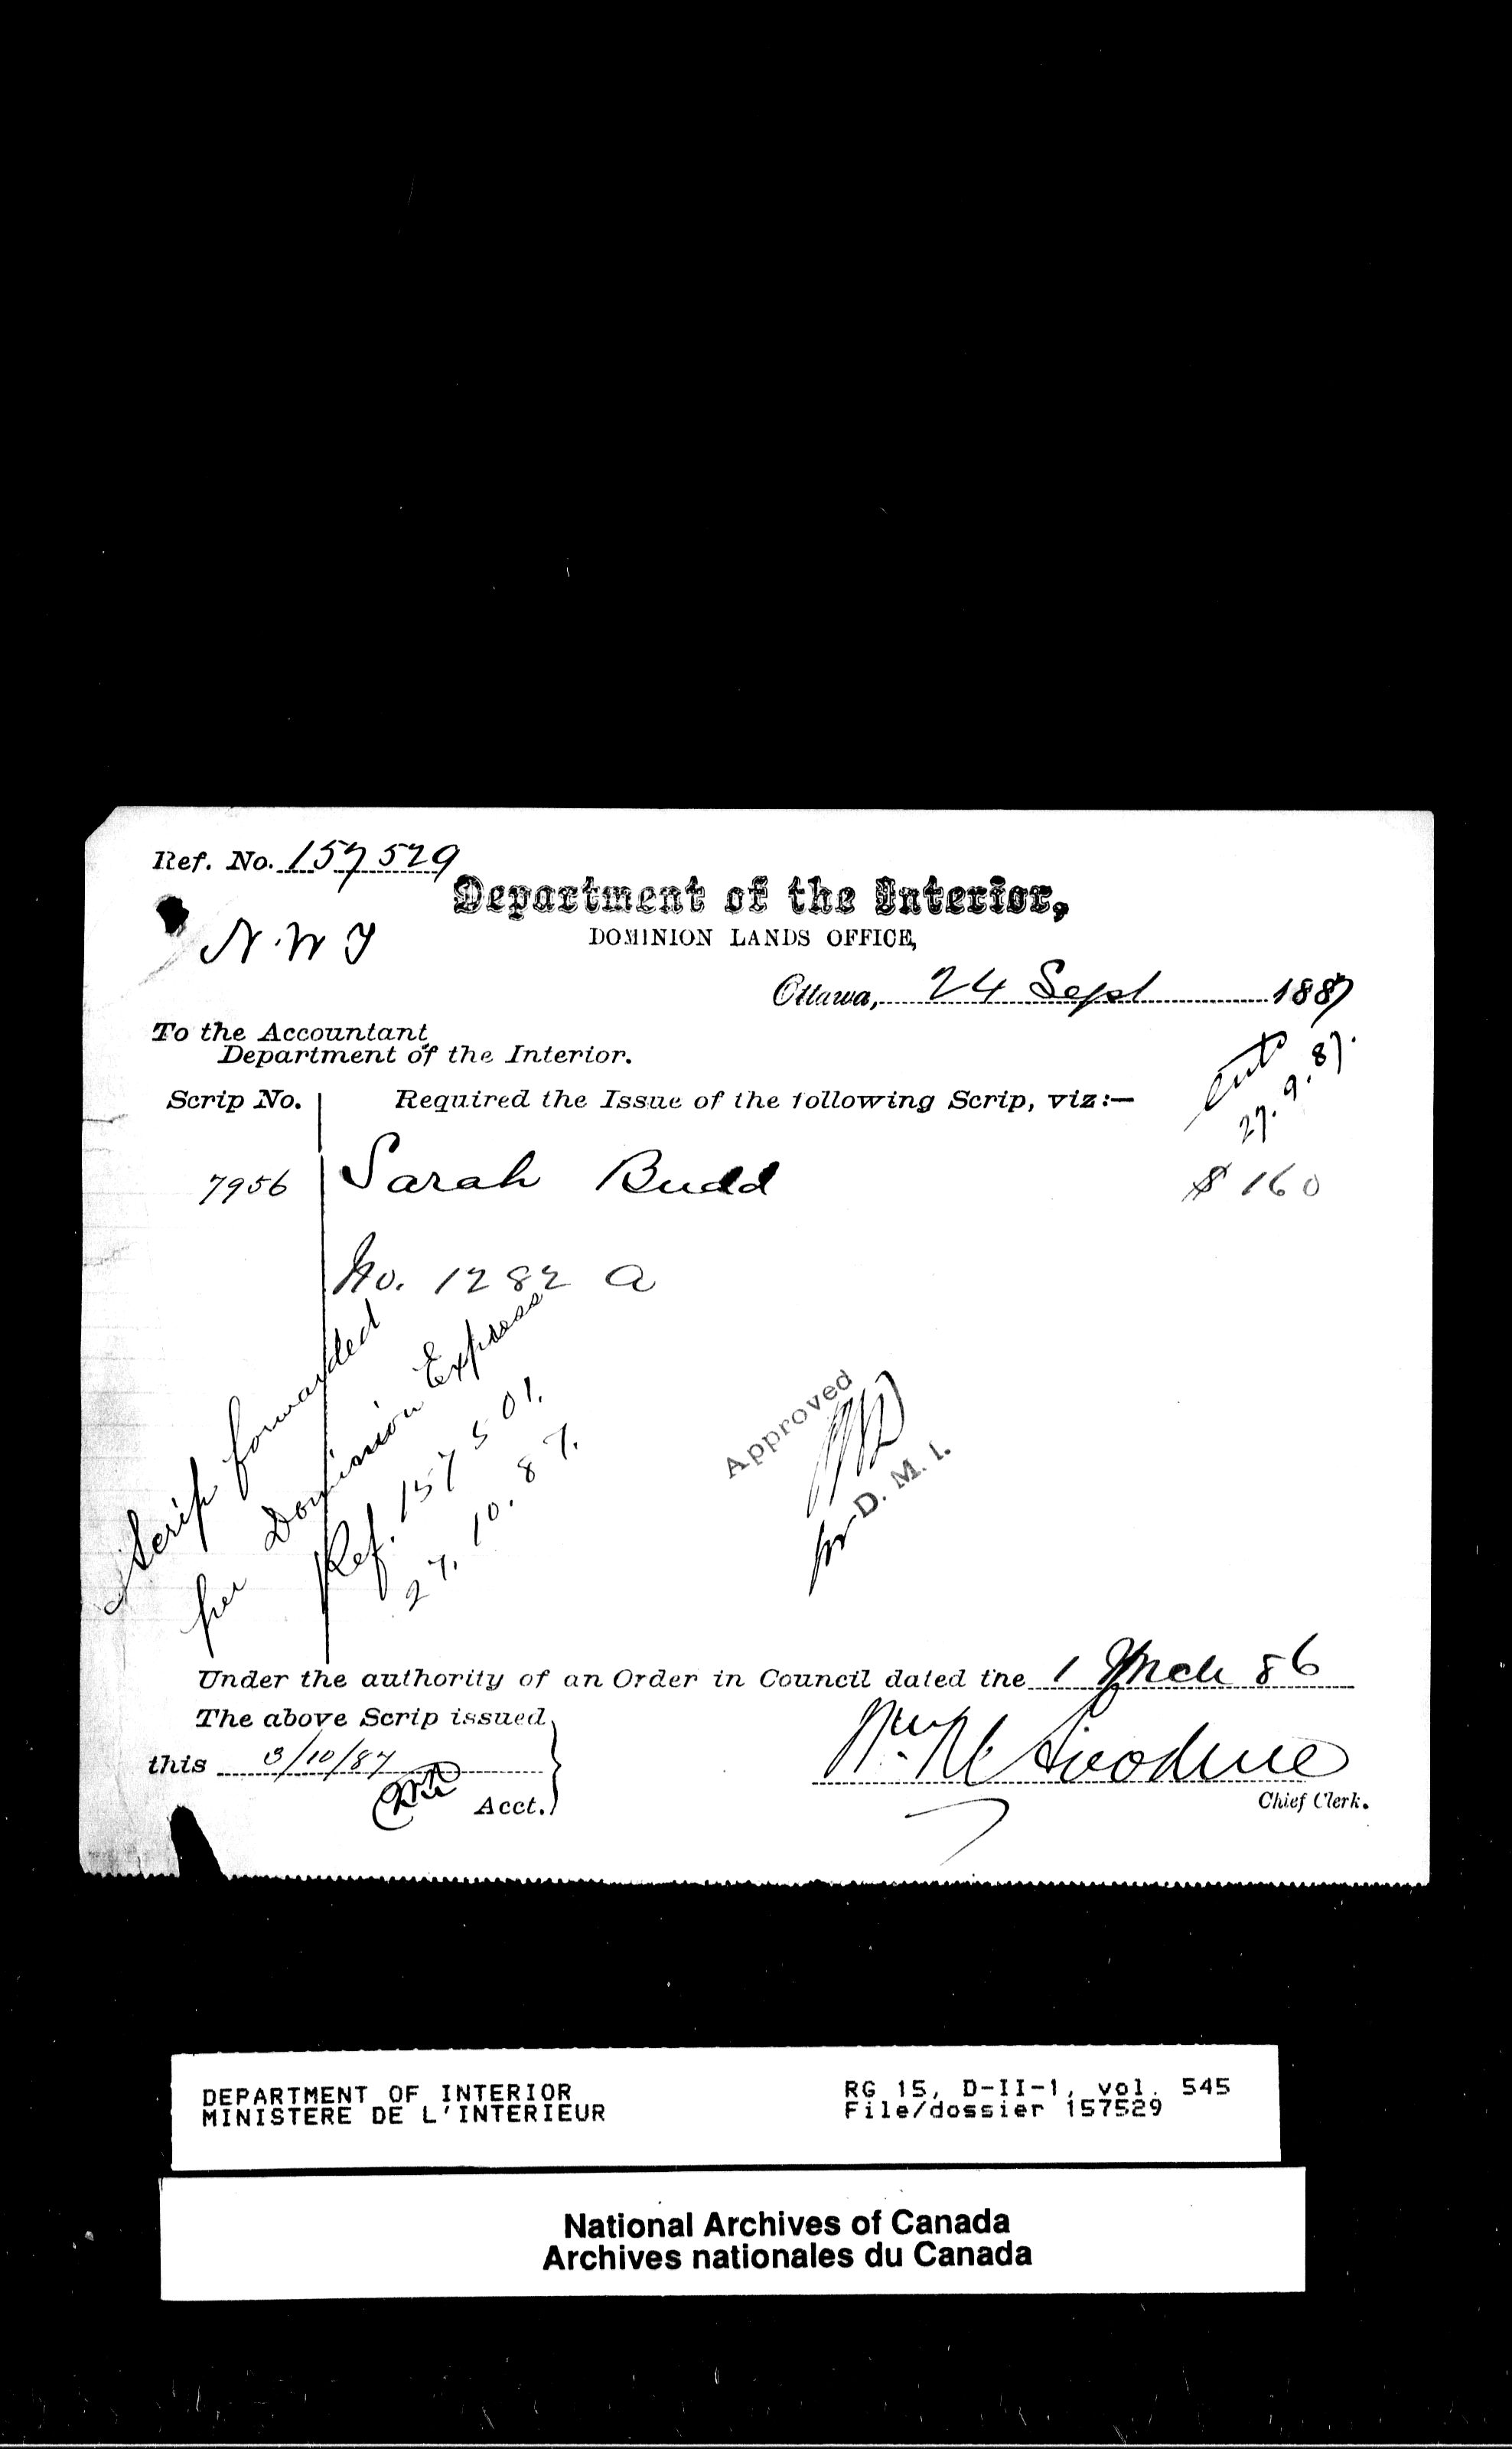 Ref. No. 157529
Department of the Interior,
N.W.T
DOMINION LANDS OFFICE,
Ottawa, 24 Sept 1887
To the Accountant
Department of the Interior.
27.9.87.
Scrip No. Required the Issue of the following Scrip, viz:—
7956 Sarah Budd $160
No. 1282 a
Scrip forwarded
per Dominion Express
Ref. 157501.
27.10.87.
Approved
for D. M. I.
Under the authority of an Order in Council dated the 1 Mch 86
The above Scrip issued
this 3/10/87
Acct.
Chief Clerk.
DEPARTMENT OF INTERIOR RG 15, D-II-1, vol. 545
MINISTERE DE L'INTERIEUR File/dossier 157529
National Archives of Canada
Archives nationales du Canada